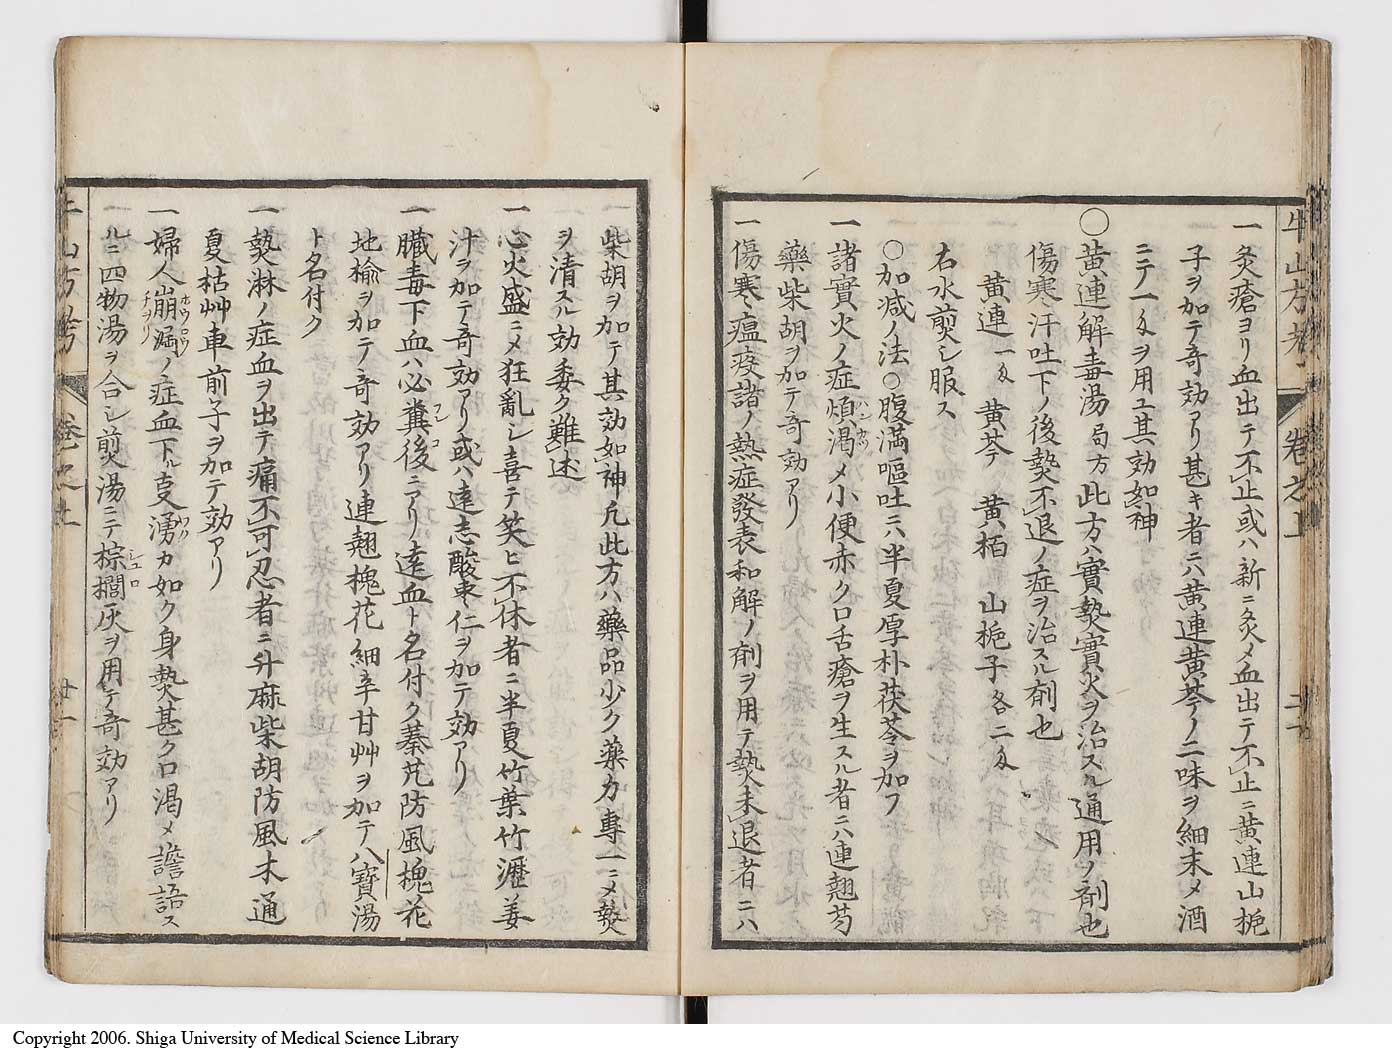 牛山方考
卷之上
一灸瘡ヨリ血出テ不止或ハ新ニ灸〆血出テ不止ニ黄連山梔
子ヲ加テ奇効アリ甚キ者ニハ黄連黄芩ノ二味ヲ細末〆酒
ニテ一匁ヲ用ユ其効如神
○黄連解毒湯 局方 此方ハ實𤍠實火ヲ治スル通用ノ剤也
傷寒汗吐下ノ後𤍠不退ノ症ヲ治スル剤也
黄連一匁 黄芩 黄栢 山梔子各二匁
右水煎シ服ス
○加减ノ法○腹満嘔吐ニハ半夏厚朴茯苓ヲ加フ
一諸實火ノ症煩渇〆小便赤ク口舌瘡ヲ生スル者ニハ連翹芍
藥柴胡ヲ加テ奇効アリ
一傷寒瘟疫諸ノ熱症發表和解ノ剤ヲ用テ𤍠未退者ニハ
一柴胡ヲ加テ其効如神凡此方ハ藥品少ク藥力專一ニ〆𤍠
ヲ清スル効委ク難述
一心火盛ニ〆狂亂シ喜テ笑ヒ不休者ニ半夏竹葉竹瀝姜
汁ヲ加テ奇効アリ或ハ遠志酸棗仁ヲ加テ効アリ
一臓毒下血ハ必糞後ニアリ遠血ト名付ク蓁芃防風槐花
地榆ヲ加テ奇効アリ連翹槐花細辛甘艸ヲ加テ八寶湯
ト名付ク
一𤍠淋ノ症血ヲ出テ痛不可忍者ニ升麻柴胡防風木通
夏枯艸車前子ヲ加テ効アリ
一婦人崩漏ノ症血下ル亙湧カ如ク身𤍠甚ク口渇〆譫語ス
ルニ四物湯ヲ合シ煎湯ニテ棕櫚灰ヲ用テ奇効アリ
牛山方考
卷之上
廿一